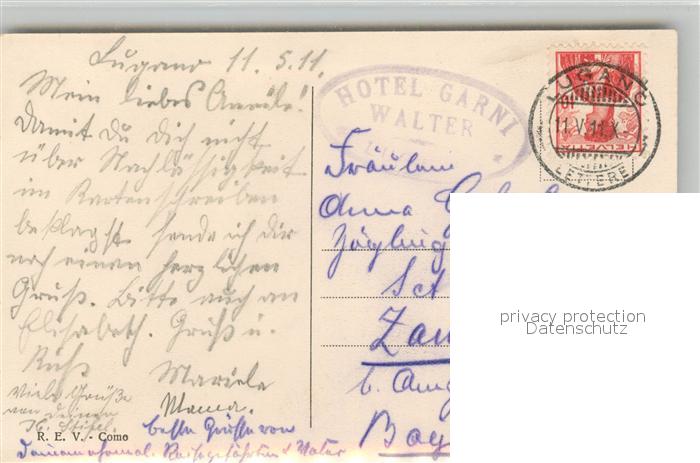 Lugano 11. 5. 11.
Mein liebes Annele!
Damit du dich nicht
über Nachlässigkeit
im Kartenschreiben
beklagst sende ich dir
noch einen herzlichen
Gruß. Bitte auch an
Elisabeth. Gruß u.
Kuß
Mariele
Mama.
Viele Grüße
von deiner
beste Grüsse von
R. E. V. - Como
HOTEL GARNI
WALTER
LUGANO
11.V.11.X
LETTERE
HELVETIA
10
Fräulein
Anna
Zögling
Bay
privacy protection
Datenschutz